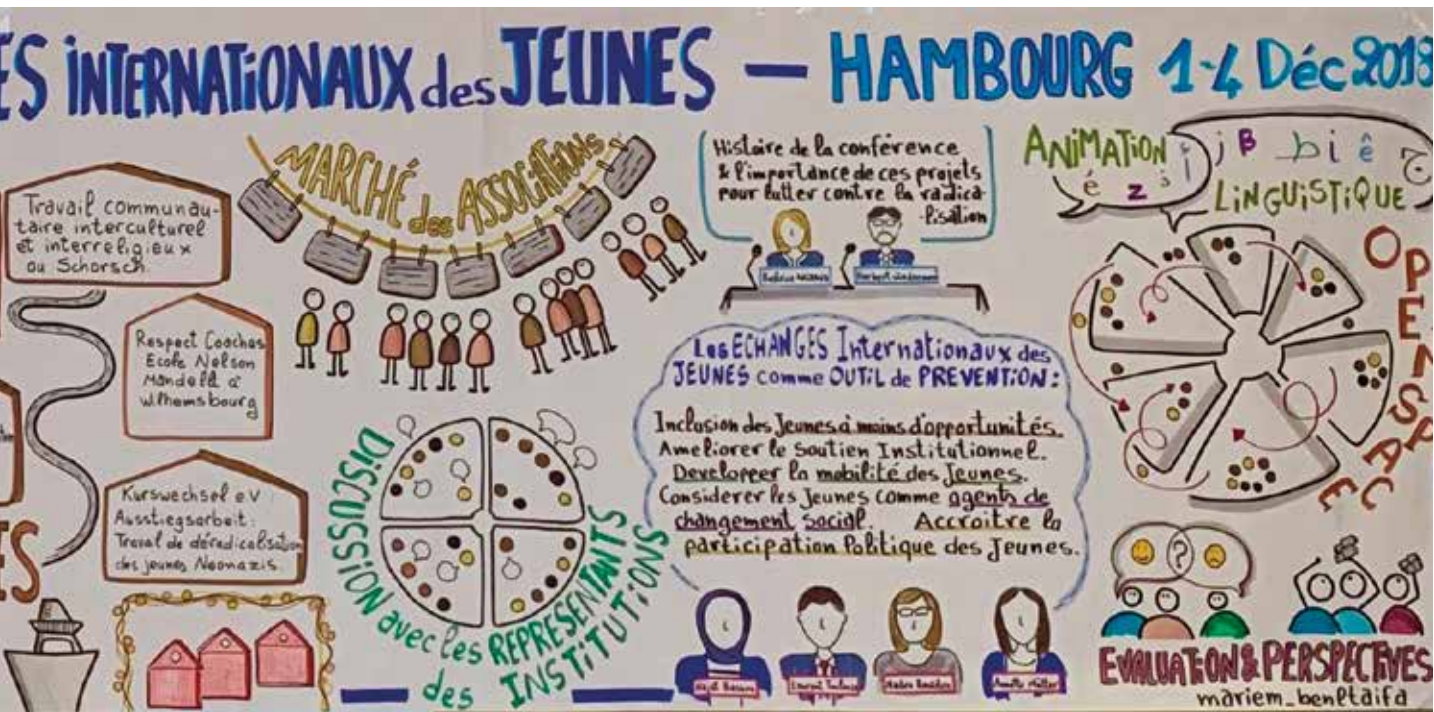 ES INTERNATIONAUX des JEUNES — HAMBOURG 1-4 Déc 2018
Travail communau-
taire interculturel
et interreligieux
ou Schorsch.
Respect Coaches
Ecole Nelson
Mandella à
wilhemsbourg
Kurswechsel e.V
Ausstiegsarbeit:
Traval de déradicalisation
des jeunes Neonazis.
ES
MARCHÉ des ASSOCIATIONS
DISCUSSION avec les REPRESENTANTS
des INSTITUTIONS
Histoire de la conférence
& l'importance de ces projets
pour lutter contre la radica-
lisation
Les ECHANGES Internationaux des
JEUNES comme OUTIL de PREVENTION :
Inclusion des Jeunes à moins d'opportunités.
Ameliorer le Soutien Institutionnel.
Developper la mobilité des Jeunes.
Considerer les Jeunes comme agents de
changement social. Accroitre la
participation Politique des Jeunes.
ANIMATION
é z
j B b i ê
LINGUISTIQUE
OPEN SPACE
?
EVALUATION & PERSPECTIVES
mariem_benltaifa